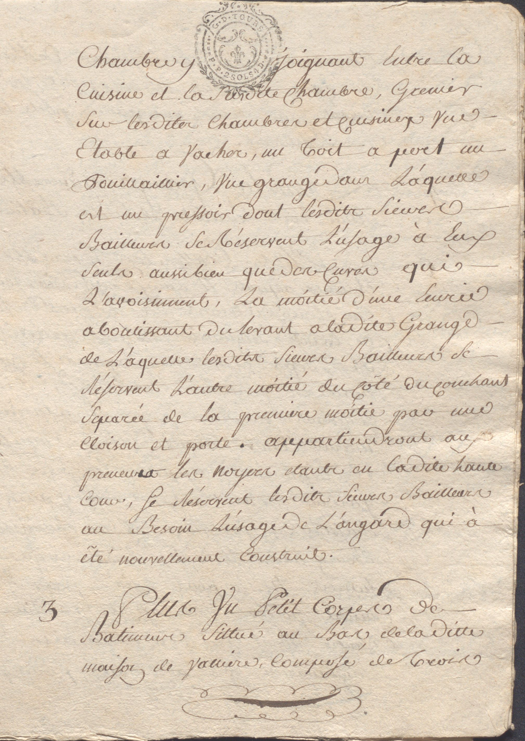 G. D. TOURS
Chambre y joignant Entre la
Cuisine et la Susdite Chambre, Grenier
Sur lesdites Chambres et Cuisines Une
Etable a Vaches, un Toit a porc un
Poullaillier, Une grange dans Laquelle
est un pressoir dont lesdits Sieurs
Bailleurs Se Réservent L'usage à Eux
Seuls aussi bien que des Cuves qui
L'avoisinent, La moitié d'une Ecurie
aboutissant du levant a ladite Grange
de Laquelle lesdits Sieurs Bailleurs Se
Réservent L'autre moitié du Côté du Couchant
Separée de la premiere moitié par une
Cloison et porte. appartiendront aux
preneurs les noyers etants en ladite haute
Cour, Se Reservent lesdits Sieurs Bailleurs
au Besoin L'usage de L'angard qui à
êté nouvellement Construit.
3 Plus Un Petit Corps de
Batiments Sittué au Bas de la ditte
maison de Composé de Trois